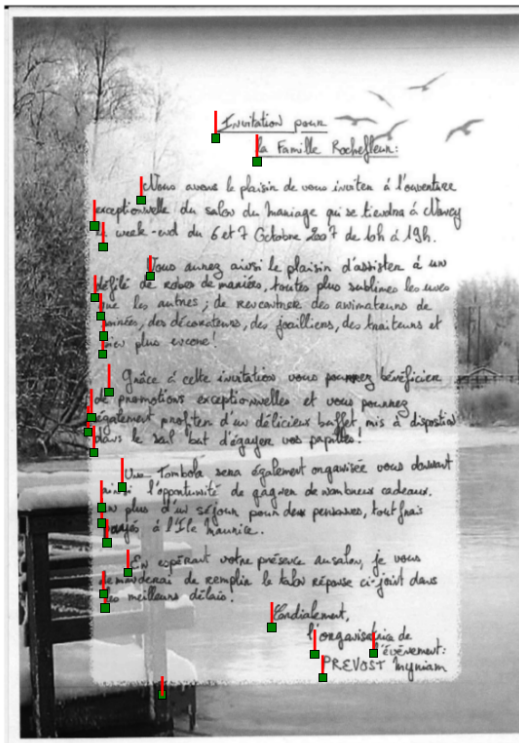 Invitation pour
la Famille Rochefleur:
Nous avons le plaisir de vous inviter à l'ouverture
exceptionnelle du salon du mariage qui se tiendra à Nancy
le week-end du 6 et 7 Octobre 2007 de 10h à 19h.
Vous aurez aussi le plaisir d'assister à un
défilé de robes de mariées, toutes plus sublimes les unes
que les autres; de rencontrer des animateurs de
soirées, des décorateurs, des joailliers, des traiteurs et
bien plus encore!
Grâce à cette invitation vous pourrez bénéficier
de promotions exceptionnelles et vous pourrez
également profiter d'un délicieux buffet, mis à disposition
dans le seul but d'égayer vos papilles!
Une Tombola sera également organisée vous donnant
ainsi l'opportunité de gagner de nombreux cadeaux.
en plus d'un séjour pour deux personnes, tout frais
payés à l'Ile Maurice..
En espérant votre présence au salon, je vous
demanderai de remplir le talon réponse ci-joint dans
les meilleurs délais.
Cordialement,
l'organisatrice de
l'évènement:
PREVOST Myriam